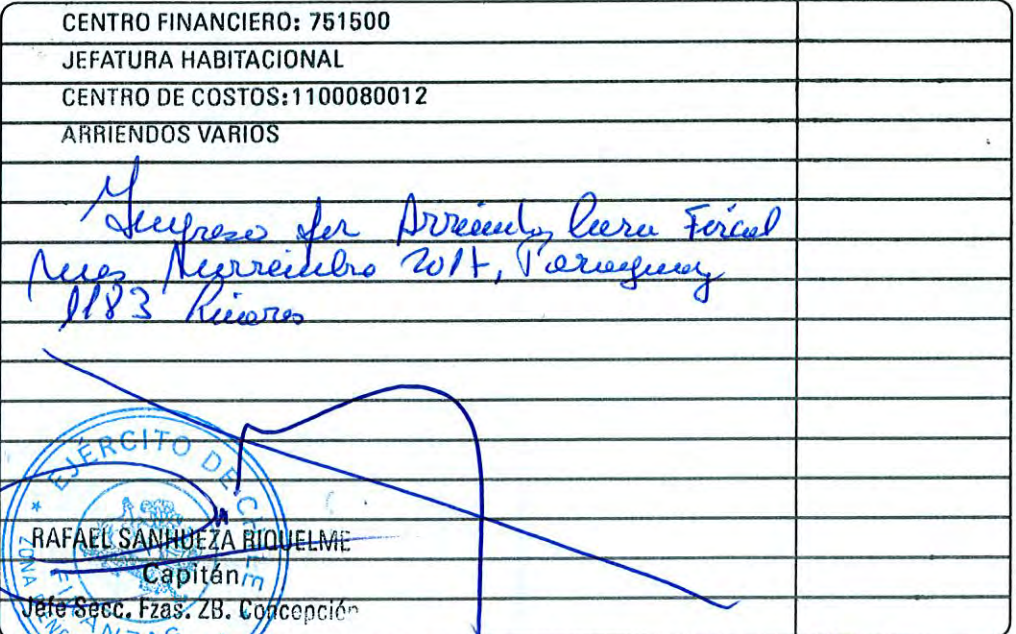 CENTRO FINANCIERO: 751500
JEFATURA HABITACIONAL
CENTRO DE COSTOS:1100080012
ARRIENDOS VARIOS
Ingreso por Arriendo Casa Fiscal
mes Noviembre 2017, Paraguay
1183 Linares
EJÉRCITO DE CHILE
RAFAEL SANHUEZA RIQUELME
Capitán
Jefe Secc. Fzas. ZB. Concepción
ZONA
FINANZAS